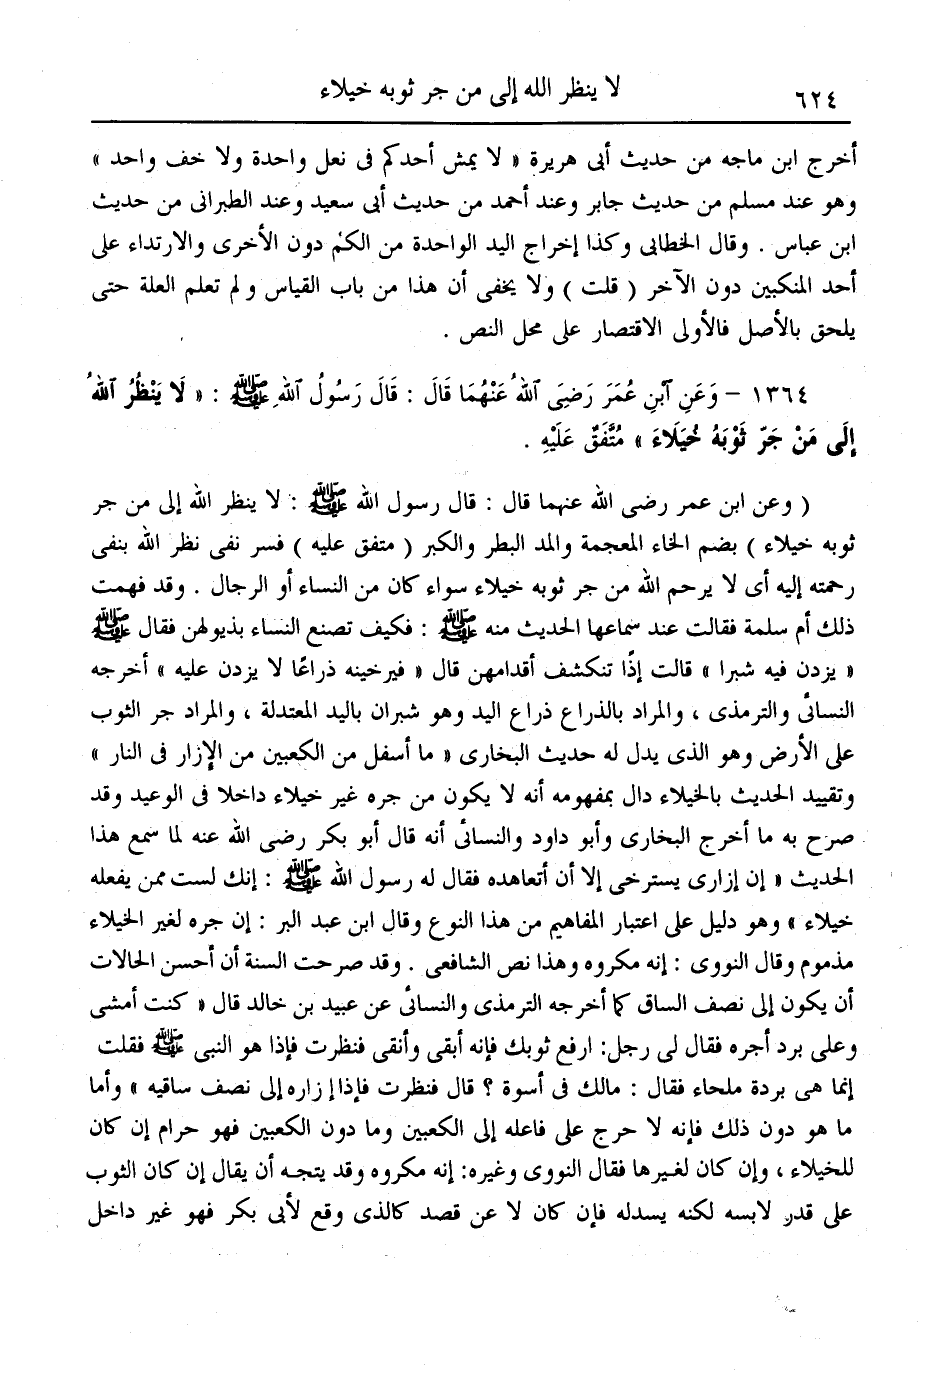 ٦٢٤ لا ينظر الله إلى من جر ثوبه خيلاء
أخرج ابن ماجه من حديث أبى هريرة « لا يمش أحدكم فى نعل واحدة ولا خف واحد »
وهو عند مسلم من حديث جابر وعند أحمد من حديث أبى سعيد وعند الطبرانى من حديث
ابن عباس . وقال الخطابى وكذا إخراج اليد الواحدة من الكم دون الأخرى والارتداء على
أحد المنكبين دون الآخر ( قلت ) ولا يخفى أن هذا من باب القياس و لم تعلم العلة حتى
يلحق بالأصل فالأولى الاقتصار على محل النص .
١٣٦٤ – وَعَنِ ٱبْنِ عُمَرَ رَضِىَ ٱللهُ عَنْهُمَا قَالَ : قَالَ رَسُولُ ٱللهِ ﷺ : « لَا يَنْظُرُ ٱللهُ
إِلَى مَنْ جَرّ ثَوْبَهُ خُيَلَاءَ » مُتَّفَقٌ عَلَيْهِ .
( وعن ابن عمر رضى الله عنهما قال : قال رسول الله ﷺ : لا ينظر الله إلى من جر
ثوبه خيلاء ) بضم الخاء المعجمة والمد البطر والكبر ( متفق عليه ) فسر نفى نظر الله بنفى
رحمته إليه أى لا يرحم الله من جر ثوبه خيلاء سواء كان من النساء أو الرجال . وقد فهمت
ذلك أم سلمة فقالت عند سماعها الحديث منه ﷺ : فكيف تصنع النساء بذيولهن فقال ﷺ
« يزدن فيه شبرا » قالت إذًا تنكشف أقدامهن قال « فيرخينه ذراعًا لا يزدن عليه » أخرجه
النسائى والترمذى ، والمراد بالذراع ذراع اليد وهو شبران باليد المعتدلة ، والمراد جر الثوب
على الأرض وهو الذى يدل له حديث البخارى « ما أسفل من الكعبين من الإزار فى النار »
وتقييد الحديث بالخيلاء دال بمفهومه أنه لا يكون من جره غير خيلاء داخلا فى الوعيد وقد
صرح به ما أخرج البخارى وأبو داود والنسائى أنه قال أبو بكر رضى الله عنه لما سمع هذا
الحديث « إن إزارى يسترخى إلا أن أتعاهده فقال له رسول الله ﷺ : إنك لست ممن يفعله
خيلاء » وهو دليل على اعتبار المفاهيم من هذا النوع وقال ابن عبد البر : إن جره لغير الخيلاء
مذموم وقال النووى : إنه مكروه وهذا نص الشافعى . وقد صرحت السنة أن أحسن الحالات
أن يكون إلى نصف الساق كما أخرجه الترمذى والنسائى عن عبيد بن خالد قال « كنت أمشى
وعلى برد أجره فقال لى رجل: ارفع ثوبك فإنه أبقى وأنقى فنظرت فإذا هو النبى ﷺ فقلت
إنما هى بردة ملحاء فقال : مالك فى أسوة ؟ قال فنظرت فإذا إزاره إلى نصف ساقيه » وأما
ما هو دون ذلك فإنه لا حرج على فاعله إلى الكعبين وما دون الكعبين فهو حرام إن كان
للخيلاء ، وإن كان لغيرها فقال النووى وغيره: إنه مكروه وقد يتجه أن يقال إن كان الثوب
على قدر لابسه لكنه يسدله فإن كان لا عن قصد كالذى وقع لأبى بكر فهو غير داخل